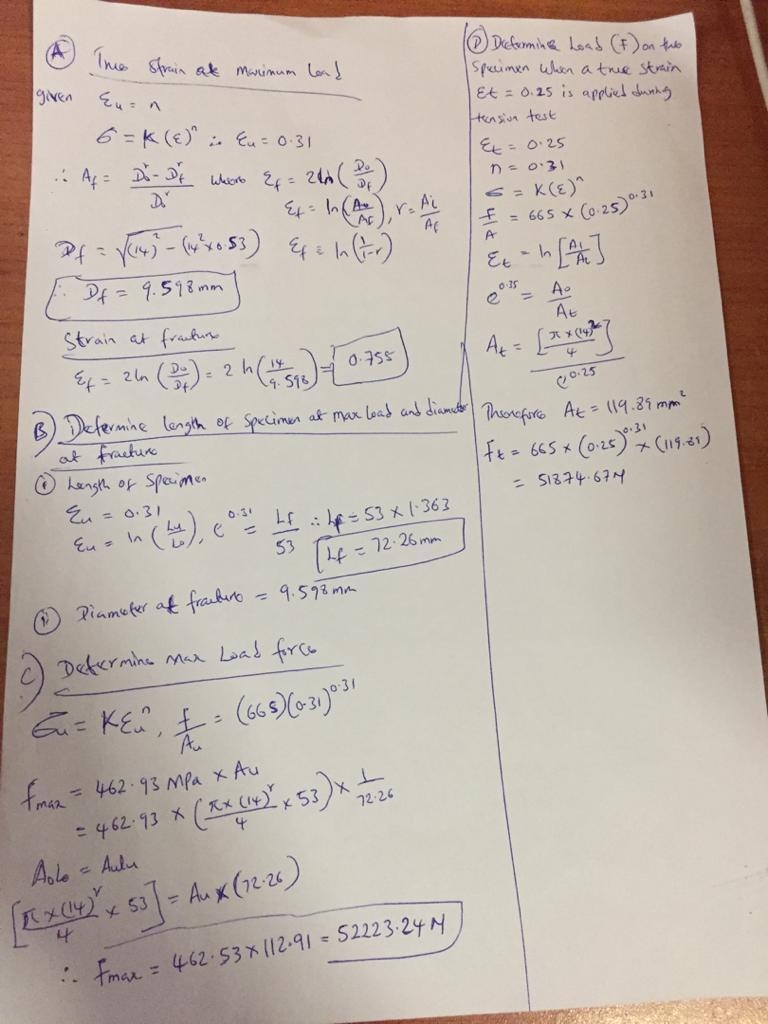 (A) True Strain at Maximum Load
given Ɛu = n
σ = K(Ɛ)^n ∴ Ɛu = 0.31
∴ Af = (Do² - Df²) / Do² where Ɛf = 2ln(Do/Df)
Ɛf = ln(Ao/Af), r = Ai/Af
Df = √((14)² - (14² x 0.53)) Ɛf = ln(1/(1-r))
∴ Df = 9.598mm
Strain at fracture
Ɛf = 2ln(Do/Df) = 2ln(14/9.598) = 0.755
B) Determine length of Specimen at max load and diameter
at fracture
(i) Length of Specimen
Ɛu = 0.31
Ɛu = ln(Lu/Lo), e^0.31 = Lf/53 ∴ Lf = 53 x 1.363
Lf = 72.26mm
(ii) Diameter at fracture = 9.598mm
C) Determine Max Load force
σu = KƐu^n, f/Au = (665)(0.31)^0.31
fmax = 462.93 MPa x Au
= 462.93 x (π x (14)²/4 x 53) x 1/72.26
AoLo = AuLu
[π x (14)²/4 x 53] = Au x (72.26)
∴ fmax = 462.53 x 112.91 = 52223.24N
(D) Determine Load (F) on the
Specimen when a true strain
Ɛt = 0.25 is applied during
tension test
Ɛt = 0.25
n = 0.31
σ = K(Ɛ)^n
f/A = 665 x (0.25)^0.31
Ɛt = ln[Ai/At]
e^0.35 = Ao/At
At = [π x (14)²/4] / e^0.25
Therefore At = 119.89mm²
Ft = 665 x (0.25)^0.31 x (119.89)
= 51874.67N